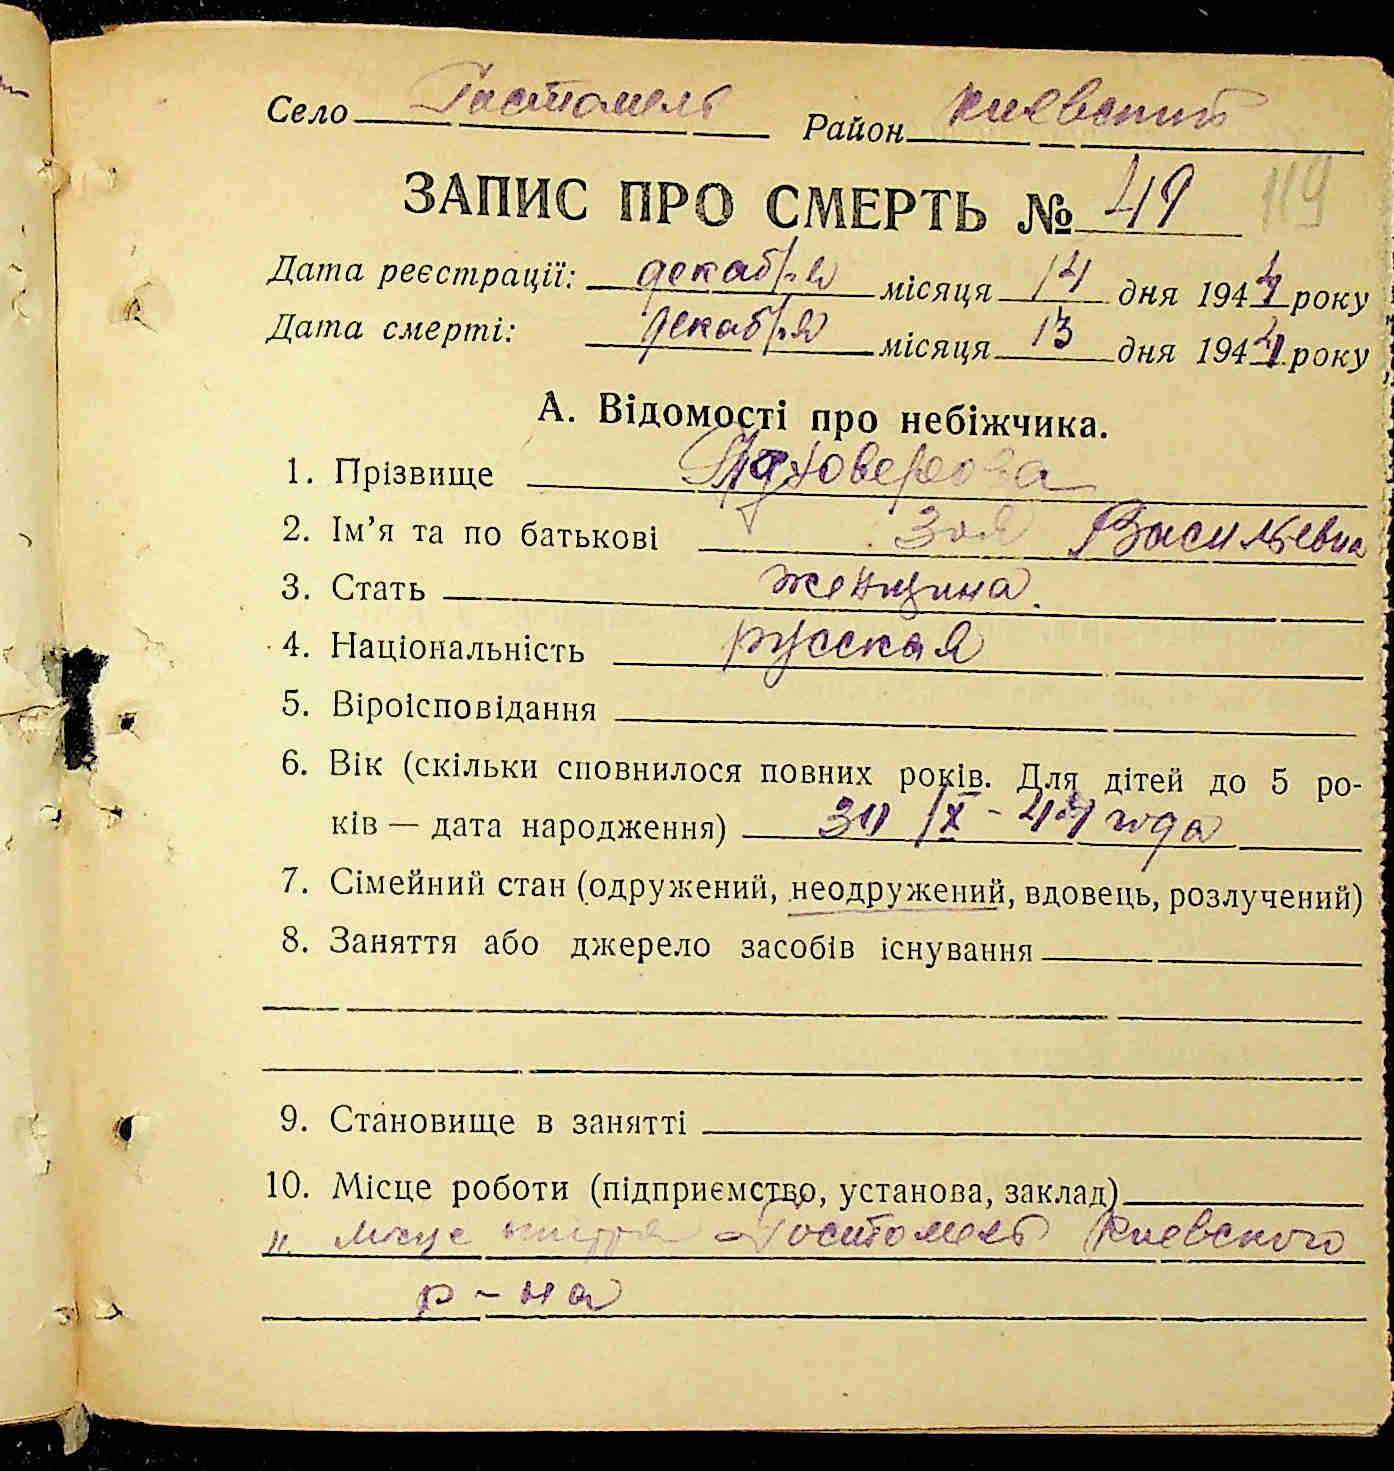 Село Гостомель Район Киевский
ЗАПИС ПРО СМЕРТЬ № 49 119
Дата реєстрації: декабря місяця 14 дня 1944 року
Дата смерті: декабря місяця 13 дня 1944 року
А. Відомості про небіжчика.
1. Прізвище
2. Ім’я та по батькові Зоя Васильевна
3. Стать женщина.
4. Національність русская
5. Віроісповідання
6. Вік (скільки сповнилося повних років. Для дітей до 5 ро-
ків — дата народження) 30 IX - 44 года
7. Сімейний стан (одружений, неодружений, вдовець, розлучений)
8. Заняття або джерело засобів існування
9. Становище в занятті
10. Місце роботи (підприємство, установа, заклад)
" Місце життя Гостомель Киевского
р-на